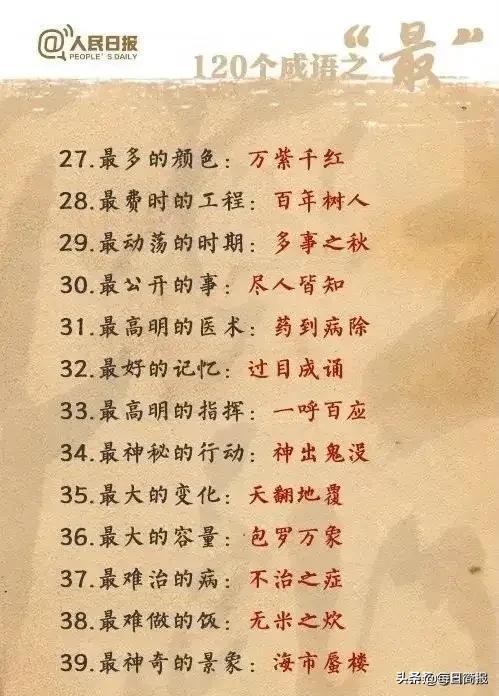 @人民日报
PEOPLE'S DAILY
120个成语之“最”
27.最多的颜色：万紫千红
28.最费时的工程：百年树人
29.最动荡的时期：多事之秋
30.最公开的事：尽人皆知
31.最高明的医术：药到病除
32.最好的记忆：过目成诵
33.最高明的指挥：一呼百应
34.最神秘的行动：神出鬼没
35.最大的变化：天翻地覆
36.最大的容量：包罗万象
37.最难治的病：不治之症
38.最难做的饭：无米之炊
39.最神奇的景象：海市蜃楼
头条@每日商报